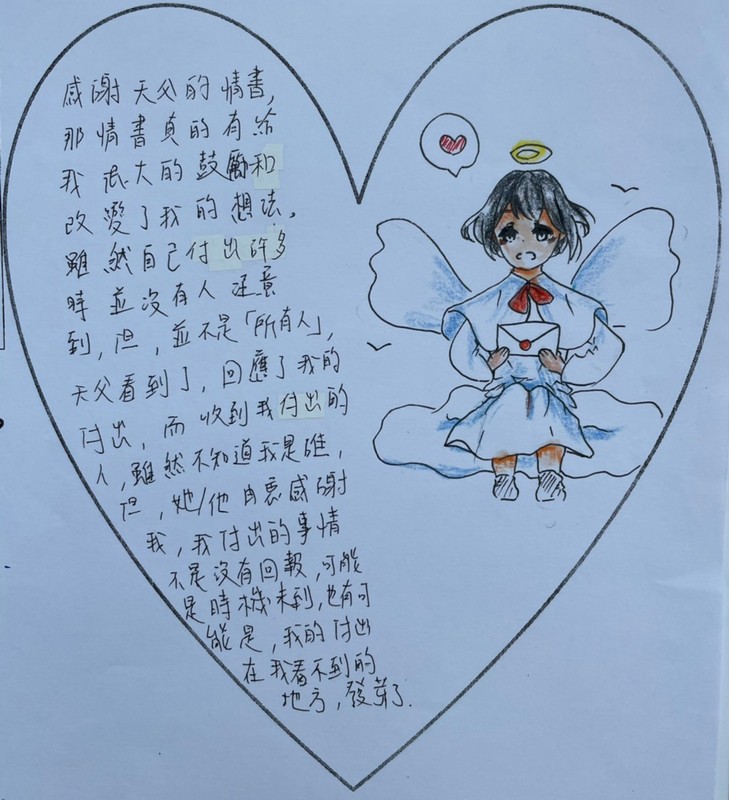 感謝天父的情書,
那情書真的有給
我很大的鼓勵和
改變了我的想法。
雖然自己付出許多
時並沒有人注意
到,但,並不是「所有人」,
天父看到了,回應了我的
付出,而收到我付出的
人,雖然不知道我是誰,
但,她/他由衷感謝
我,我付出的事情
不是沒有回報,可能
是時機未到,也有可
能是,我的付出
在我看不到的
地方,發芽了.